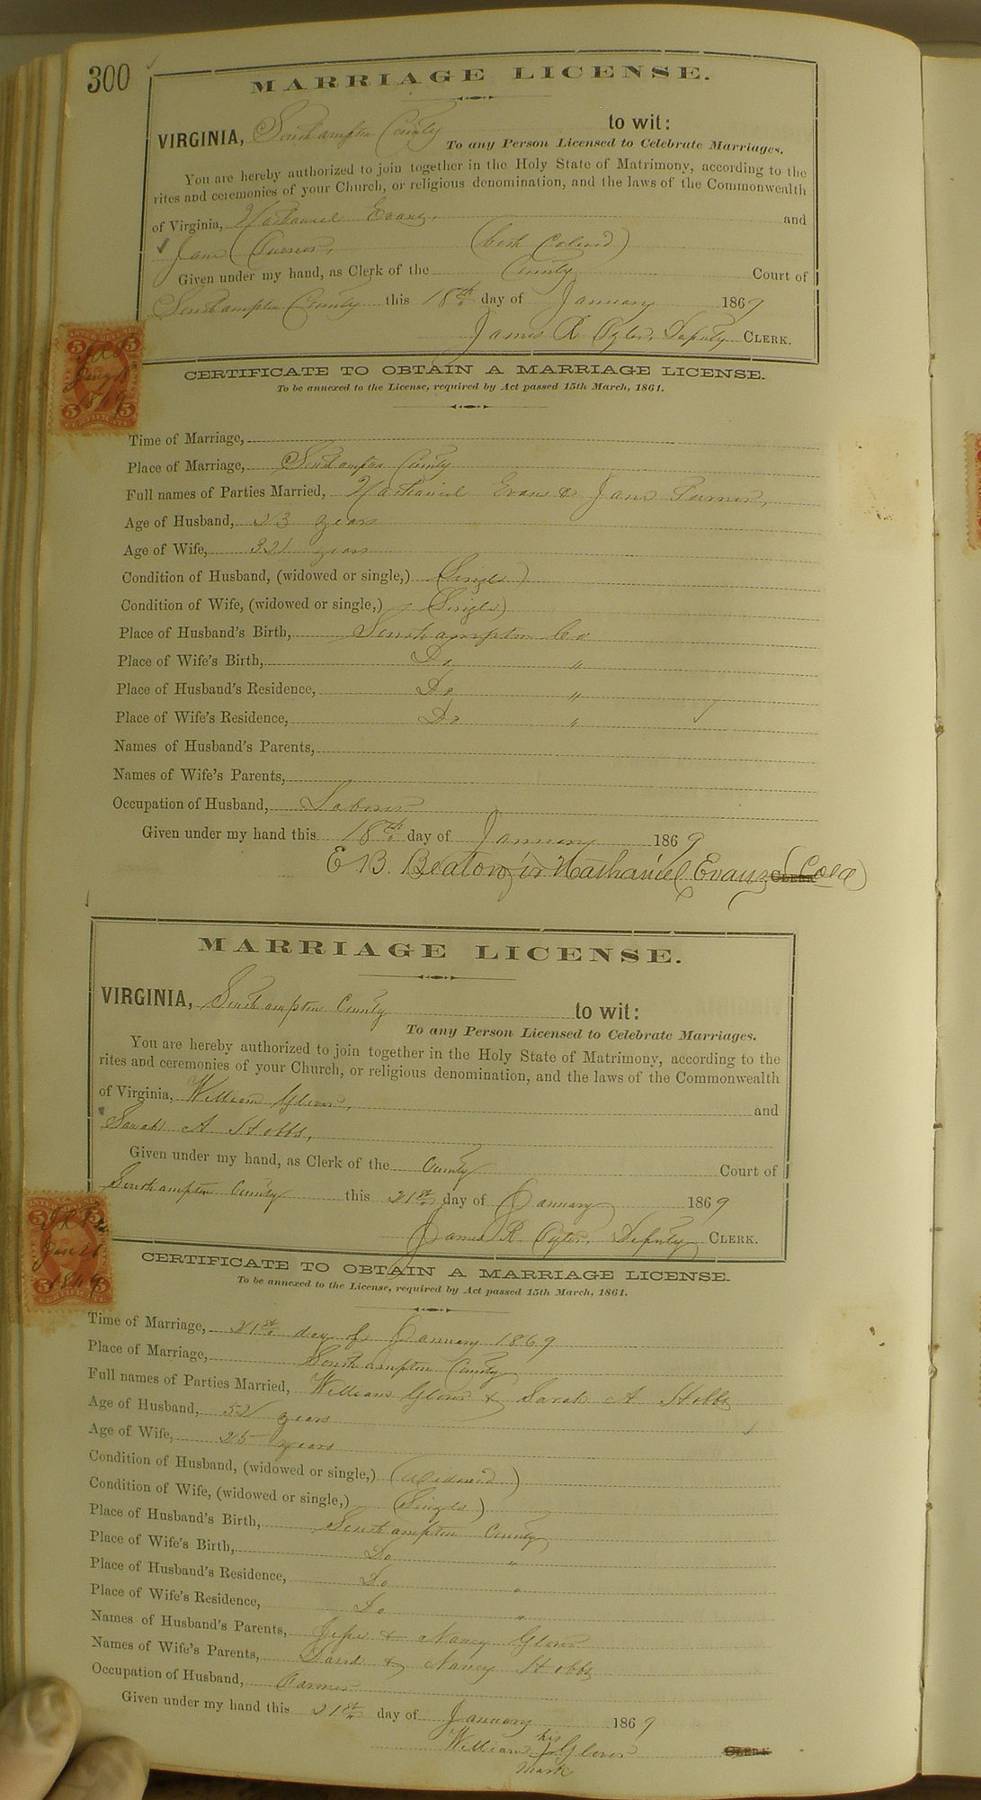 300
MARRIAGE LICENSE.
VIRGINIA, Southampton County to wit:
To any Person Licensed to Celebrate Marriages.
You are hereby authorized to join together in the Holy State of Matrimony, according to the
rites and ceremonies of your Church, or religious denomination, and the laws of the Commonwealth
of Virginia, Nathaniel Evans, and
Jane Turner, (both Colored)
Given under my hand, as Clerk of the County Court of
Southampton County this 18th day of January 1869
James R Deputy CLERK.
5 5
Jany 18
1869
5 5
CERTIFICATE TO OBTAIN A MARRIAGE LICENSE.
To be annexed to the License, required by Act passed 15th March, 1861.
Time of Marriage,
Place of Marriage, Southampton County
Full names of Parties Married, Nathaniel Evans & Jane Turner,
Age of Husband, 23 years
Age of Wife, 32 years
Condition of Husband, (widowed or single,) (Single)
Condition of Wife, (widowed or single,) (Single)
Place of Husband's Birth, Southampton Co
Place of Wife's Birth, Do "
Place of Husband's Residence, Do "
Place of Wife's Residence, Do "
Names of Husband's Parents,
Names of Wife's Parents,
Occupation of Husband, Laborer
Given under my hand this 18th day of January 1869
E B. Beaton for Nathaniel Evans (Cold) CLERK
MARRIAGE LICENSE.
VIRGINIA, Southampton County to wit:
To any Person Licensed to Celebrate Marriages.
You are hereby authorized to join together in the Holy State of Matrimony, according to the
rites and ceremonies of your Church, or religious denomination, and the laws of the Commonwealth
of Virginia, William Glover, and
Sarah A Stobbs,
Given under my hand, as Clerk of the County Court of
Southampton County this 21st day of January 1869
James R Deputy CLERK.
5 5
Jan 21
1869
5 5
CERTIFICATE TO OBTAIN A MARRIAGE LICENSE.
To be annexed to the License, required by Act passed 15th March, 1861.
Time of Marriage, 21st day of January 1869
Place of Marriage, Southampton County
Full names of Parties Married, William Glover & Sarah A Stobbs
Age of Husband, 52 years
Age of Wife, 25 years
Condition of Husband, (widowed or single,) (Widowed)
Condition of Wife, (widowed or single,) (Single)
Place of Husband's Birth, Southampton County
Place of Wife's Birth, Do "
Place of Husband's Residence, Do "
Place of Wife's Residence, Do "
Names of Husband's Parents, & Nancy Glover
Names of Wife's Parents, David & Nancy Stobbs
Occupation of Husband, Farmer
Given under my hand this 21st day of January 1869
his
William Glover CLERK
mark